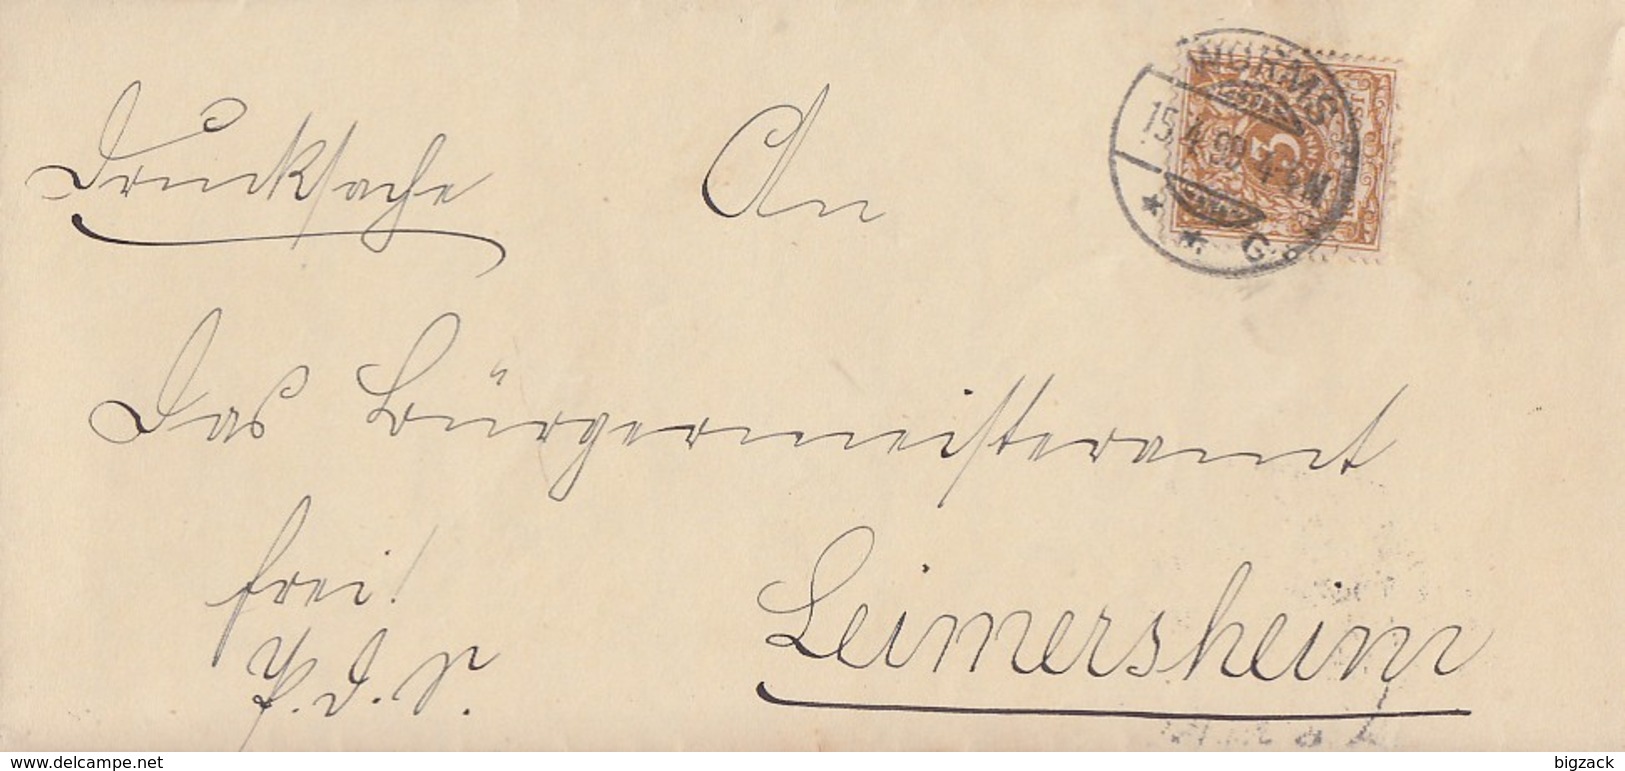 WORMS
15. 99 4-5 N
* * G.
3
Drucksache
An
Das Bürgermeisteramt
frei!
P. d. S.
Leimersheim
delcampe.net
bigzack